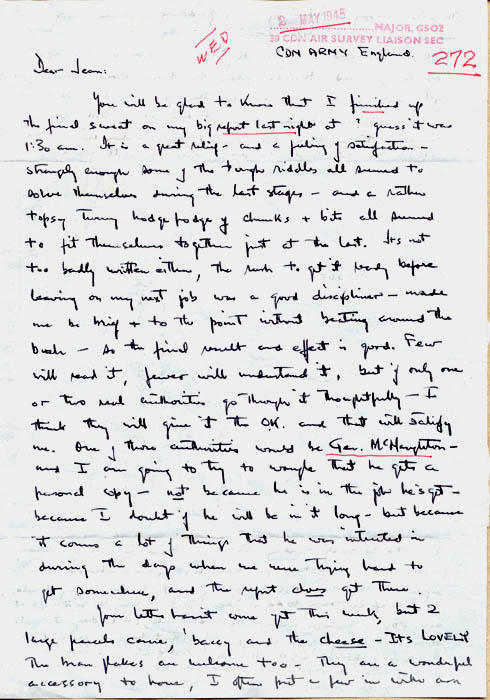 2 MAY 1945
MAJOR, GSO2
30 CDN AIR SURVEY LIAISON SEC
WED
CDN ARMY England.
272
Dear Jean:
You will be glad to know that I finished up
the final sweat on my big report last night at ? guess it was
1:30 am. It is a great relief - and a feeling of satisfaction -
strangely enough some of the tough riddles all seemed to
solve themselves during the last stages - and a rather
topsy turvy hodge podge of chunks + bits all seemed
to fit themselves together just at the last. Its not
too badly written either, the rush to get it ready before
leaving on my next job was a good discipliner - made
me be brief + to the point without beating around the
bush - so the final result and effect is good. Few
will read it, fewer will understand it, but if only one
or two real authorities go through it thoughtfully - I
think they will give it the OK. and that will satisfy
me. One of those authorities would be Gen. McNaughton -
and I am going to try to wangle that he gets a
personal copy - not because he is in the job he's got -
because I doubt if he will be in it long - but because
it covers a lot of things that he was interested in
during the days when we were trying hard to
get somewhere, and the report does get there.
Your letter hasn't come yet this week, but 2
large parcels came, 'baccy and the cheese - Its LOVELY
The bran flakes are welcome too - They are a wonderful
accessory to home, I often put a few in